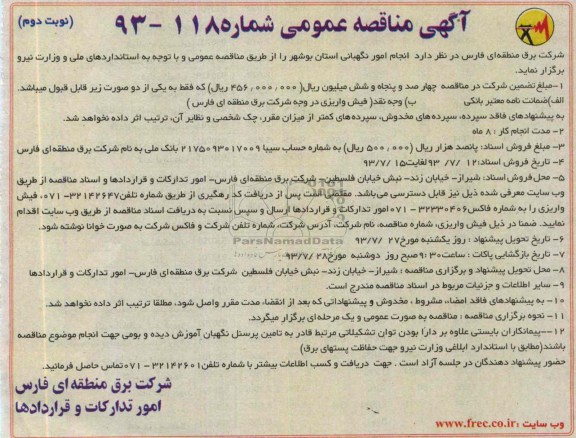 آگهی مناقصه عمومی شماره ۱۱۸ -۹۳
(نوبت دوم)
شرکت برق منطقه‌ای فارس در نظر دارد انجام امور نگهبانی استان بوشهر را از طریق مناقصه عمومی و با توجه به استانداردهای ملی و وزارت نیرو
برگزار نماید.
۱-مبلغ تضمین شرکت در مناقصه چهار صد و پنجاه و شش میلیون ریال( ۴۵۶,۰۰۰,۰۰۰ ریال) که فقط به یکی از دو صورت زیر قابل قبول میباشد.
الف)ضمانت نامه معتبر بانکی ب) وجه نقد( فیش واریزی در وجه شرکت برق منطقه ای فارس )
به پیشنهادهای فاقد سپرده، سپرده‌های مخدوش، سپرده‌های کمتر از میزان مقرر، چک شخصی و نظایر آن، ترتیب اثر داده نخواهد شد.
۲- مدت انجام کار : ۸ ماه
۳- مبلغ فروش اسناد: پانصد هزار ریال (۵۰۰,۰۰۰ ریال) به شماره حساب سیبا ۲۱۷۵۰۹۳۰۱۷۰۰۹ بانک ملی به نام شرکت برق منطقه‌ای فارس
۴- تاریخ فروش اسناد: ۱۲ /۷/ ۹۳ لغایت ۹۳/۷/۱۵
۵- محل فروش اسناد: شیراز- خیابان زند- نبش خیابان فلسطین- شرکت برق منطقه‌ای فارس- امور تدارکات و قراردادها و اسناد مناقصه از طریق
وب سایت معرفی شده ذیل نیز قابل دسترسی می‌باشد. مقتضی است پس از دریافت کد رهگیری از طریق شماره تلفن ۳۲۱۴۲۶۴۷-۰۷۱، فیش
واریزی را به شماره فاکس ۳۲۳۳۰۴۰۶ - ۰۷۱ امور تدارکات و قراردادها ارسال و سپس نسبت به دریافت اسناد مناقصه از طریق وب سایت اقدام
نمایید. ضمنا در ذیل فیش واریزی، شماره مناقصه، نام شرکت، آدرس شرکت، شماره تلفن شرکت و فاکس شرکت به صورت خوانا نوشته شود.
۶- تاریخ تحویل پیشنهاد : روز یکشنبه مورخ ۲۷ /۹۳/۷
۷- تاریخ بازگشایی پاکات : ساعت ۹:۳۰ صبح روز دوشنبه مورخ ۲۸ /۹۳/۷
۸- محل تحویل پیشنهاد و برگزاری مناقصه : شیراز- خیابان زند- نبش خیابان فلسطین شرکت برق منطقه‌ای فارس- امور تدارکات و قراردادها
۹- سایر اطلاعات و جزئیات مربوط در اسناد مناقصه مندرج است.
۱۰- به پیشنهادهای فاقد امضا، مشروط ، مخدوش و پیشنهاداتی که بعد از انقضا، مدت مقرر واصل شود، مطلقا ترتیب اثر داده نخواهد شد.
۱۱- نحوه برگزاری مناقصه : مناقصه به صورت عمومی و یک مرحله‌ای برگزار میگردد.
۱۲-پیمانکاران بایستی علاوه بر دارا بودن توان تشکیلاتی مرتبط قادر به تامین پرسنل نگهبان آموزش دیده و بومی جهت انجام موضوع مناقصه
باشند(مطابق با استاندارد ابلاغی وزارت نیرو جهت حفاظت پستهای برق)
حضور پیشنهاد دهندگان در جلسه آزاد است . جهت دریافت و کسب اطلاعات بیشتر با شماره تلفن ۳۲۱۴۲۶۰۱ - ۰۷۱ تماس حاصل فرمائید.
شرکت برق منطقه ای فارس
امور تدارکات و قراردادها
وب سایت : www.frec.co.ir
ParsNamadData